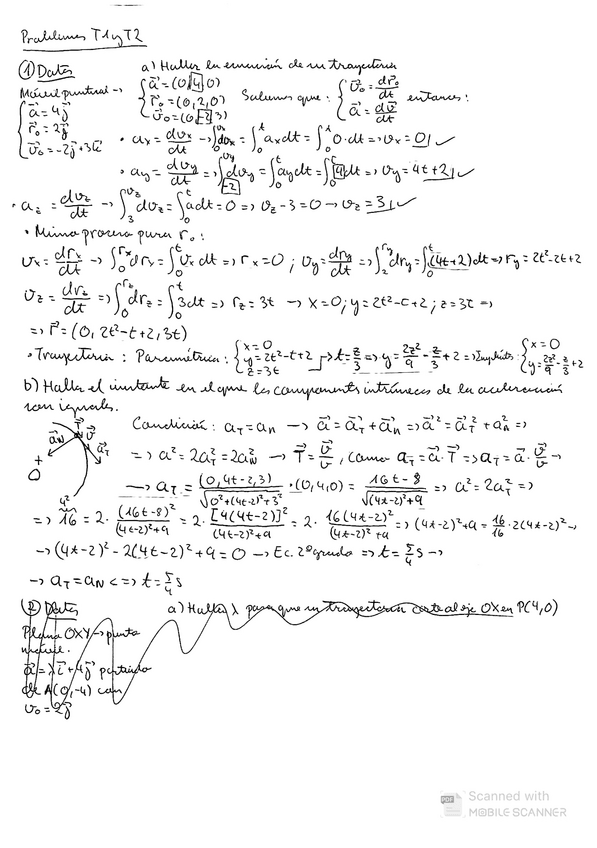 Problemas T1 y T2
① Datos
a) Hallar la ecuación de su trayectoria
Móvil puntual →
{ a⃗ = 4j⃗
r⃗₀ = 2j⃗
v⃗₀ = -2j⃗+3k⃗
{ a⃗ = (0,4,0)
r⃗₀ = (0,2,0)
v⃗₀ = (0,-2,3)
Sabemos que: { v⃗₀ = dr⃗₀/dt
a⃗ = dv⃗/dt entonces:
• ax = dvx/dt → ∫₀^vx dvx = ∫₀^t ax dt = ∫₀^t 0·dt => vx = 0 ✓
• ay = dvy/dt → ∫₋₂^vy dvy = ∫₀^t ay dt = ∫₀^t 4 dt => vy = 4t+2 ✓
• az = dvz/dt → ∫₃^vz dvz = ∫₀^t a dt = 0 => vz - 3 = 0 → vz = 3 ✓
• Mismo proceso para r⃗₀:
vx = drx/dt → ∫₀^rx drx = ∫₀^t vx dt => rx = 0 ; vy = dry/dt => ∫₂^ry dry = ∫₀^t (4t+2)dt => ry = 2t²-2t+2
vz = drz/dt => ∫₀^rz drz = ∫₀^t 3dt => rz = 3t → x=0; y=2t²-t+2; z=3t =>
=> r⃗ = (0, 2t²-t+2, 3t)
• Trayectoria: Paramétrica: { x=0
y=2t²-t+2
z=3t → t = z/3 => y = 2z²/9 - z/3 + 2 => Implícita { x=0
y = 2z²/9 - z/3 + 2
b) Halla el instante en el que las componentes intrínsecas de la aceleración
son iguales.
T⃗ v⃗ a⃗N a⃗T O
Condición: aT = an → a⃗ = a⃗T + a⃗n => a⃗² = a⃗T² + an² =>
=> a² = 2aT² = 2aN² → T⃗ = v⃗/v, como aT = a⃗·T⃗ => aT = a⃗·v⃗/v →
→ aT = (0,4t-2,3)/√(0²+(4t-2)²+3²) ·(0,4,0) = 16t-8/√((4t-2)²+9) => a² = 2aT² =>
4²
=> 16 = 2·(16t-8)²/((4t-2)²+9) = 2·[4(4t-2)]²/((4t-2)²+9) = 2·16(4t-2)²/((4t-2)²+9) => (4t-2)²+9 = 16/16·2(4t-2)² →
→ (4t-2)² - 2(4t-2)² + 9 = 0 → Ec. 2º grado => t = 5/4 s →
→ aT = aN <=> t = 5/4 s
② Datos
a) Halla λ para que su trayectoria corte al eje OX en P(4,0)
Plano OXY → punto
móvil.
a⃗ = λi⃗+4j⃗ partiendo
de A(0,-4) con
v₀ = 2j⃗
PDF
Scanned with
MOBILE SCANNER